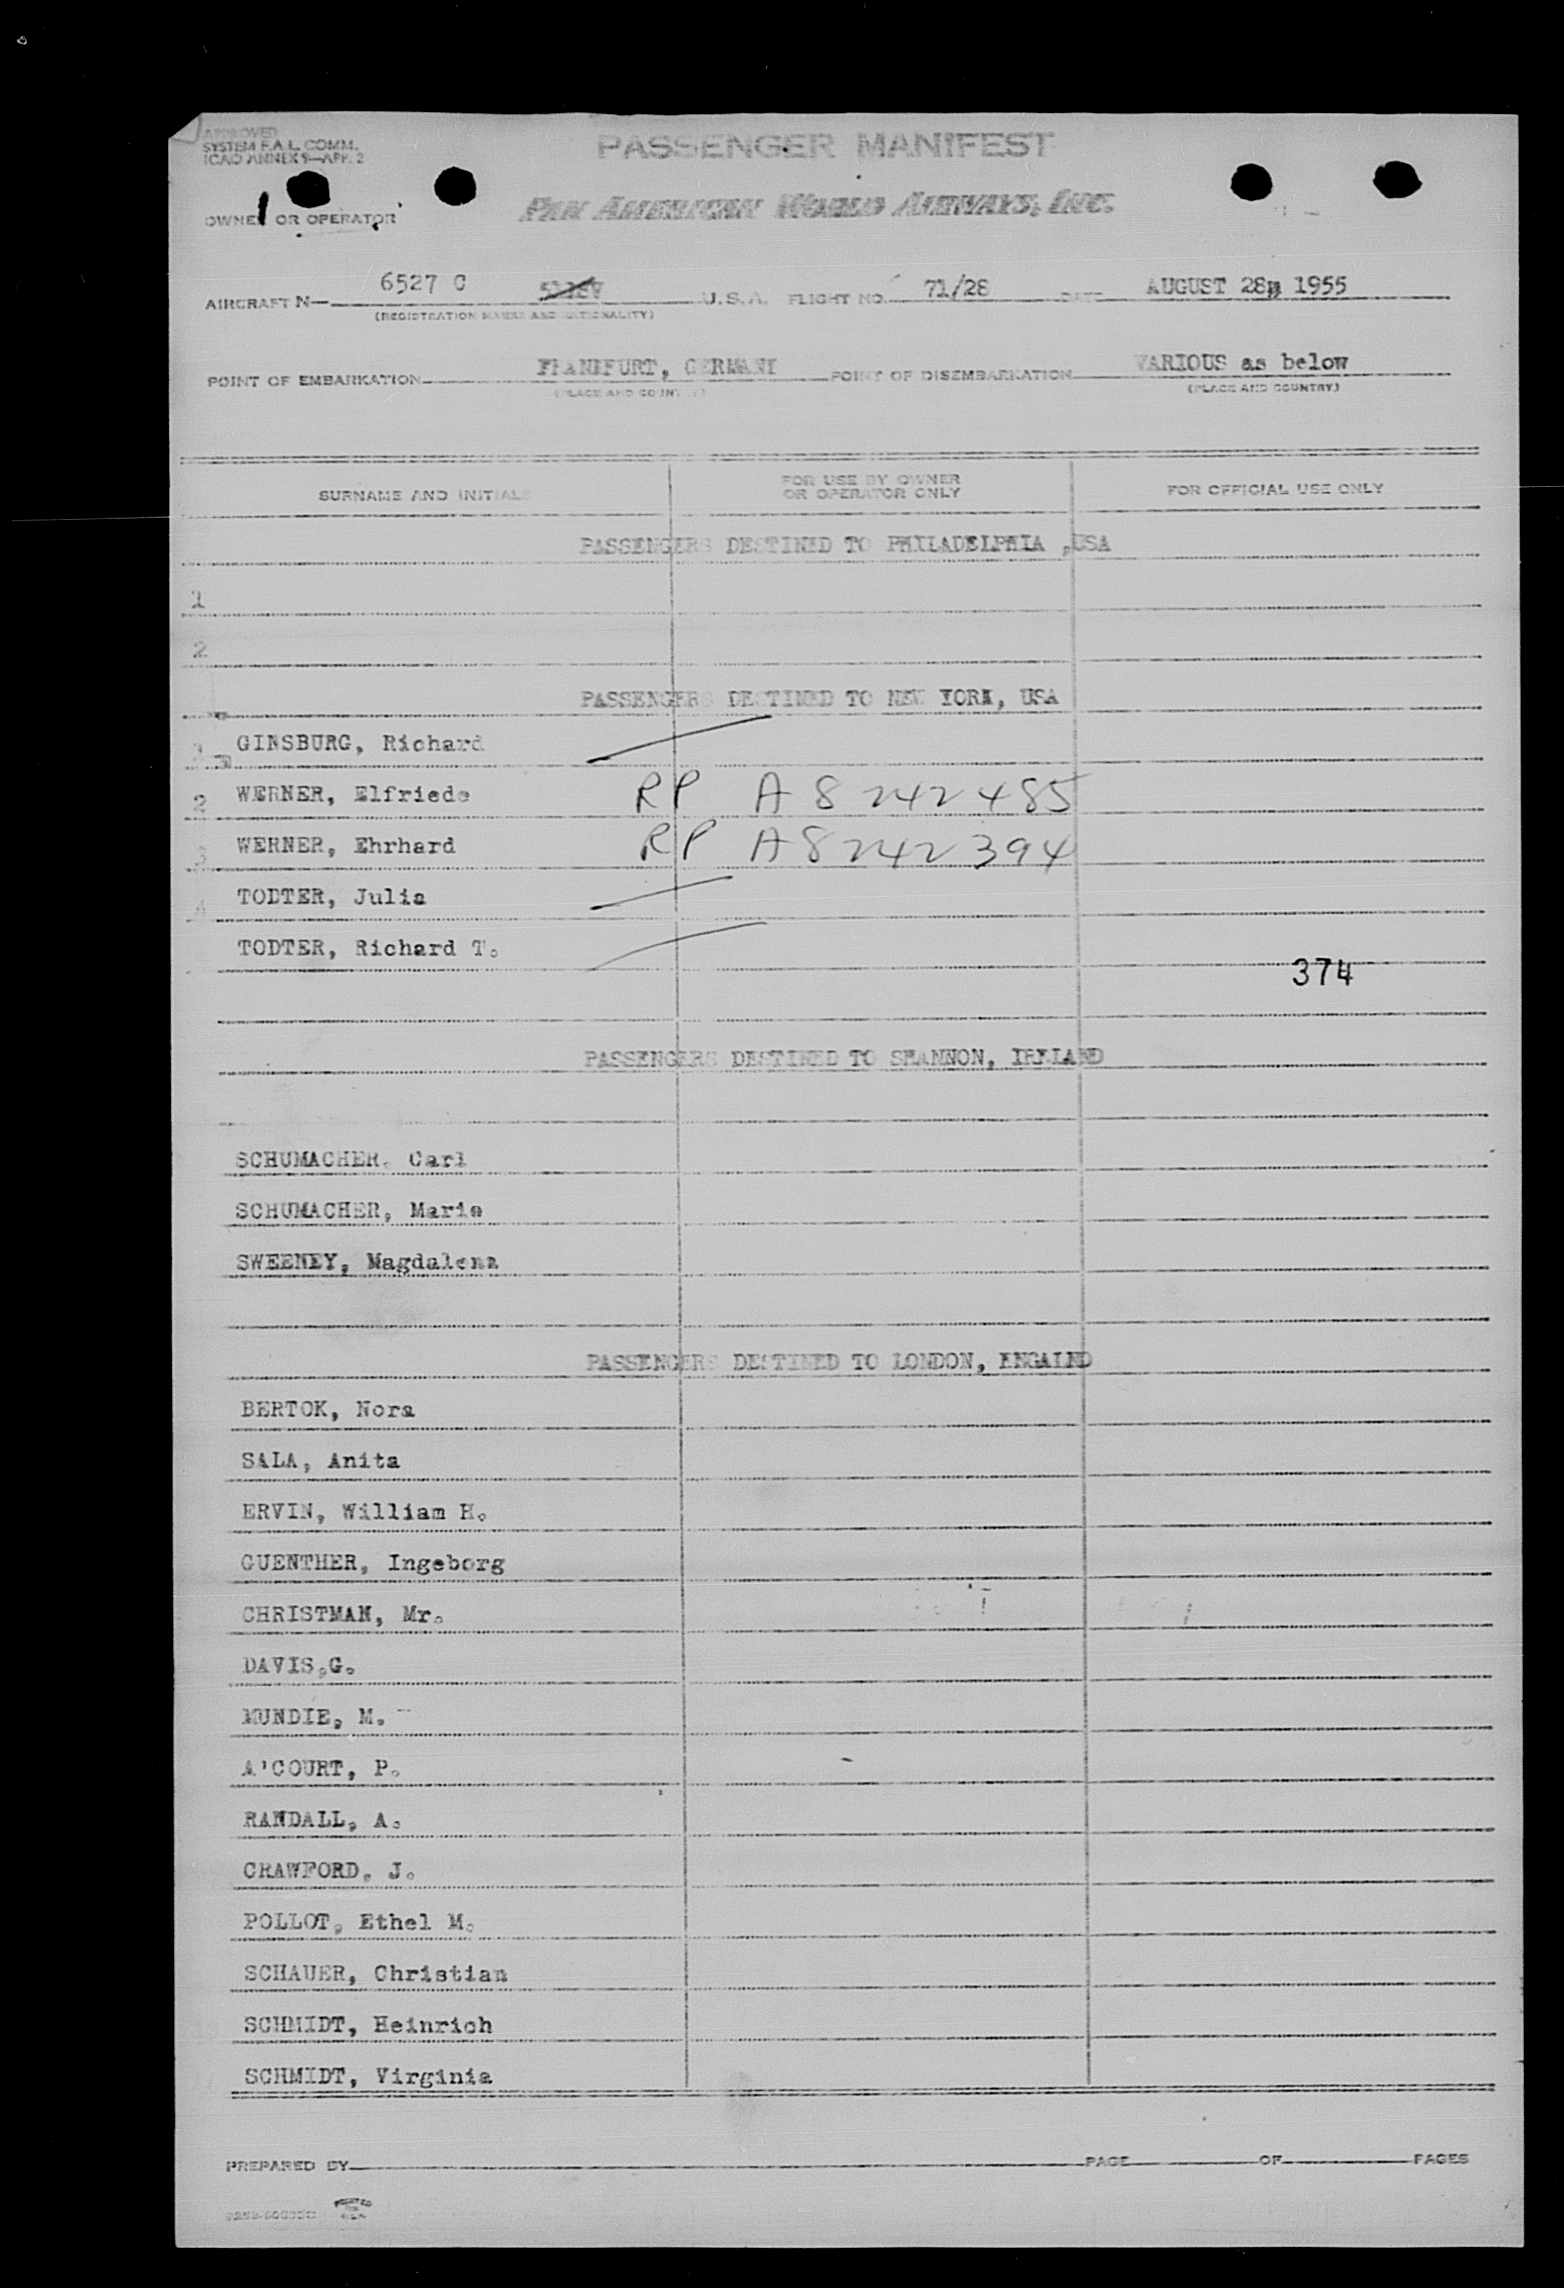 APPROVED
SYSTEM F.A.L. COMM.
ICAO ANNEX 9—APP. 2
PASSENGER MANIFEST
OWNER OR OPERATOR
PAN AMERICAN WORLD AIRWAYS, INC.
AIRCRAFT N— 6527 C U.S.A. FLIGHT NO. 71/28 DATE AUGUST 28, 1955
(REGISTRATION MARKS AND NATIONALITY)
POINT OF EMBARKATION FRANKFURT, GERMANY POINT OF DISEMBARKATION VARIOUS as below
(PLACE AND COUNTRY) (PLACE AND COUNTRY)
SURNAME AND INITIALS FOR USE BY OWNER OR OPERATOR ONLY FOR OFFICIAL USE ONLY
PASSENGERS DESTINED TO PHILADELPHIA ,USA
1
2
PASSENGERS DESTINED TO NEW YORK, USA
1 GINSBURG, Richard
2 WERNER, Elfriede RP A8 242 485
3 WERNER, Ehrhard RP A8 242 394
4 TODTER, Julia
TODTER, Richard T.
374
PASSENGERS DESTINED TO SHANNON, IRELAND
SCHUMACHER, Carl
SCHUMACHER, Marie
SWEENEY, Magdalena
PASSENGERS DESTINED TO LONDON, ENGALND
BERTOK, Nora
SALA, Anita
ERVIN, William H.
GUENTHER, Ingeborg
CHRISTMAN, Mr.
DAVIS,G.
MUNDIE, M.
A'COURT, P.
RANDALL, A.
CRAWFORD, J.
POLLOT, Ethel M.
SCHAUER, Christian
SCHMIDT, Heinrich
SCHMIDT, Virginia
PREPARED BY PAGE OF PAGES
PRINTED
IN
U.S.A.